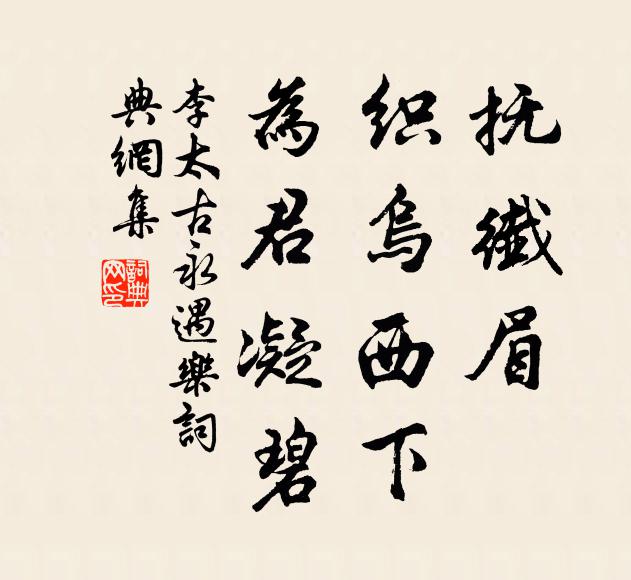 抚纖眉
织乌西下
為君凝碧
李太古永遇樂詞
典網集
詞典
网印